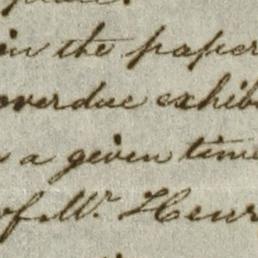 in the paper
overdue exhib
a given time
of Mr. Henr